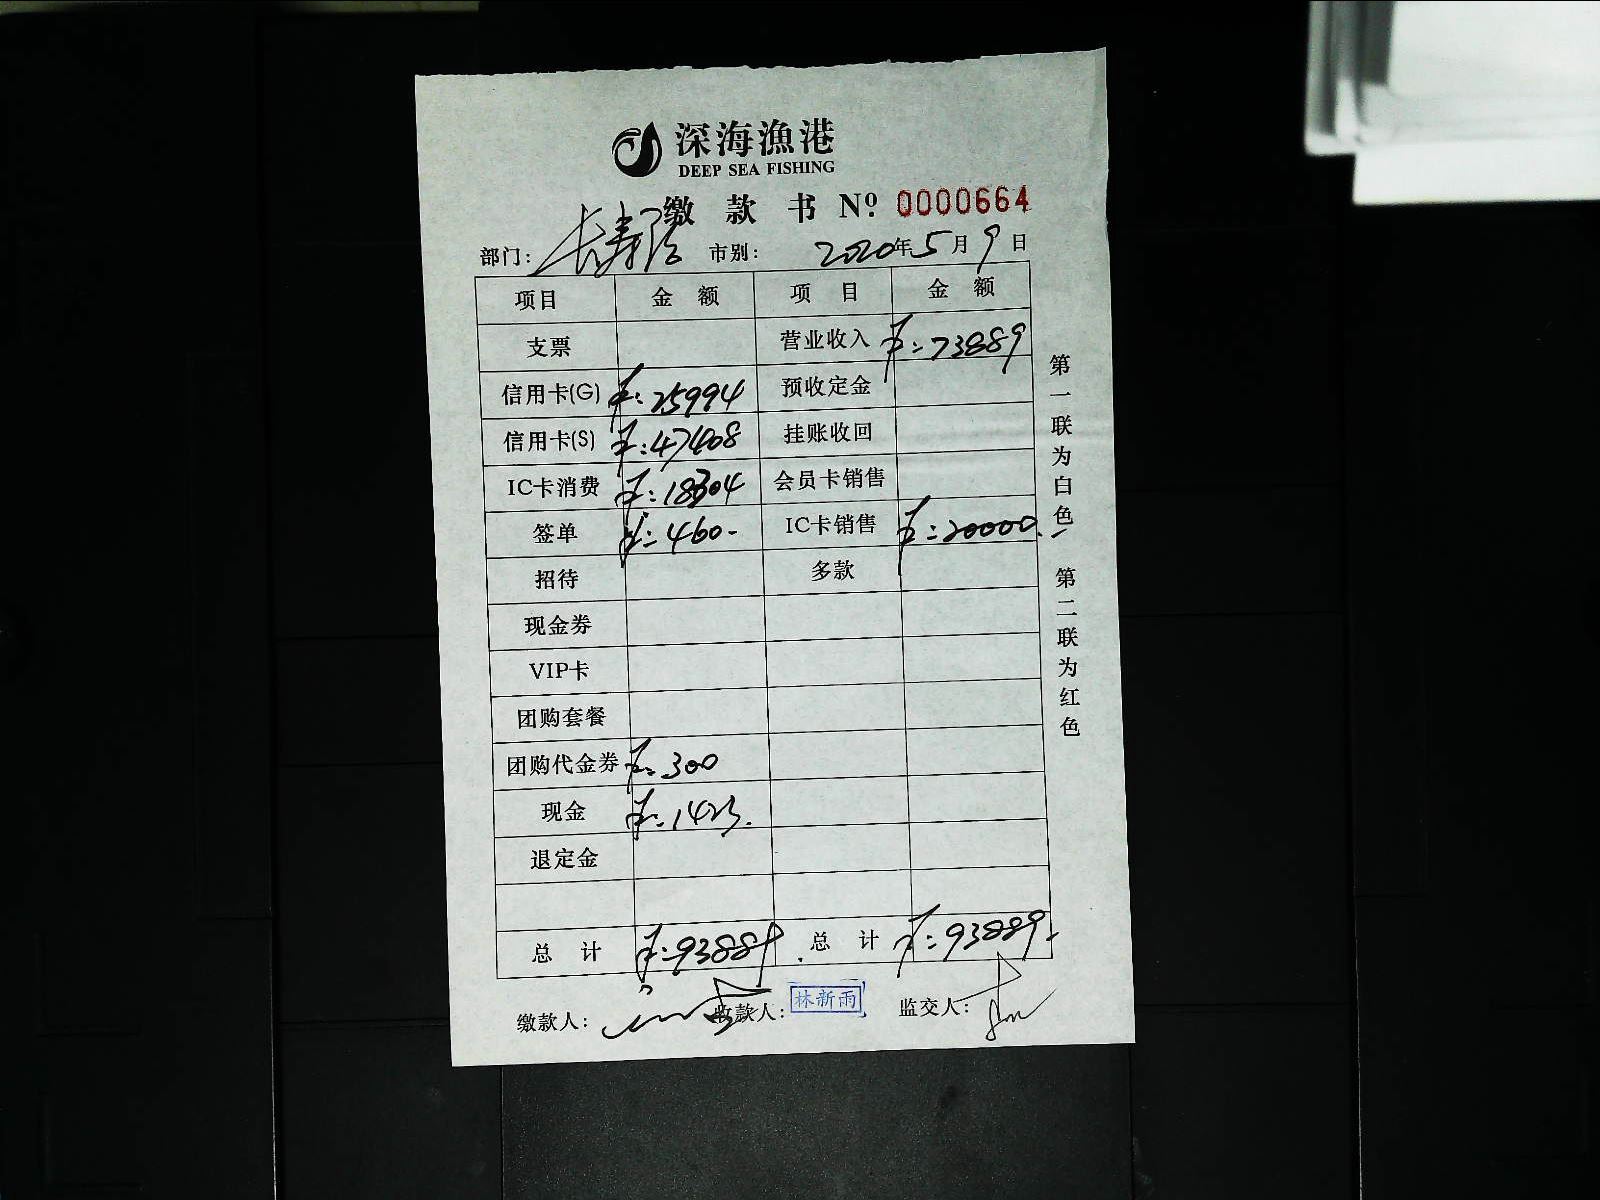 深海漁港
DEEP SEA FISHING
缴 款 书 Nº. 0000664
部门: 长寿路 市别: 2020年5月9日
项目 金 额 项 目 金 额
支票 营业收入 ¥:73889
信用卡(G) ¥:25994 预收定金
信用卡(S) ¥:47408 挂账收回
IC卡消费 ¥:18304 会员卡销售
签单 ¥:460- IC卡销售 ¥:20000.-
招待 多款
现金券
VIP卡
团购套餐
团购代金券 ¥:300
现金 ¥:1423.
退定金
总 计 ¥:93889 总 计 ¥:93889.-
缴款人: 收款人: 林新雨 监交人:
第一联为白色 第二联为红色